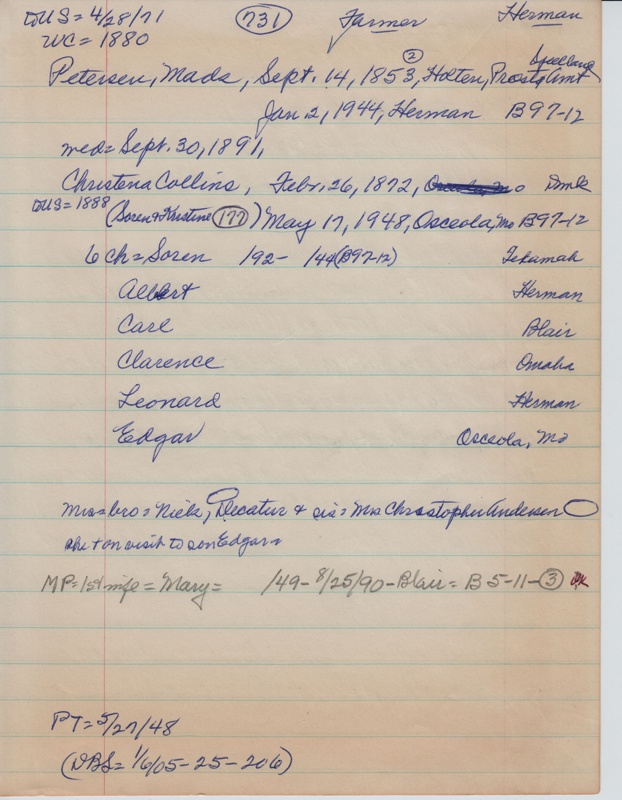 to US = 4/28/71 (731) Farmer Herman
WC = 1880
Petersen, Mads, Sept. 14, 1853, (2) Holten, Prosto Amt
Jan. 2, 1944, Herman B97-12
med = Sept. 30, 1891,
Christena Collins, Febr. 26, 1872, Dmk
to US = 1888 (Soren & Kristine (177)) May 17, 1948, Osceola, Mo B97-12
6 ch = Soren /92- /44 (B97-12) Tekamah
Albert Herman
Carl Blair
Clarence Omaha
Leonard Herman
Edgar Osceola, Mo
Mrs = bro = Niels, Decatur & sis = Mrs Christopher Andersen
she + on visit to son Edgar =
MP = 1st wife = Mary = /49 - 8/25/90 - Blair = B 5-11-(3) OK
PT = 5/27/48
(DBS = 1/6/05 - 25 - 206)